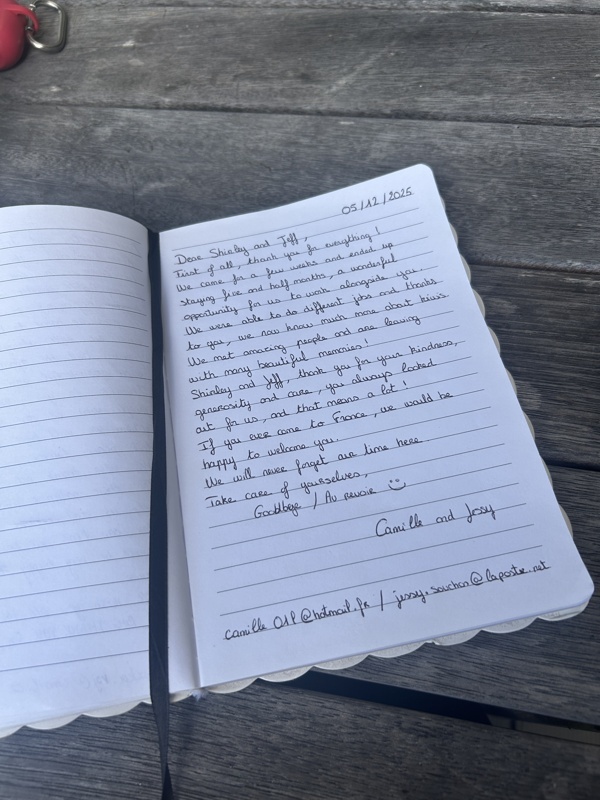 05/12/2025
Dear Shirley and Jeff,
First of all, thank you for everything!
We came for a few weeks and ended up
staying five and half months, a wonderful
opportunity for us to work alongside you.
We were able to do different jobs and thanks
to you, we now know much more about kiwis
We met amazing people and are leaving
with many beautiful memories!
Shirley and Jeff, thank you for your kindness,
generosity and care, you always looked
out for us, and that means a lot!
If you ever come to France, we would be
happy to welcome you.
We will never forget our time here.
Take care of yourselves,
Goodbye / Au revoir
Camille and Jessy
camille 01P@hotmail.fr / jessy.souchon@laposte.net